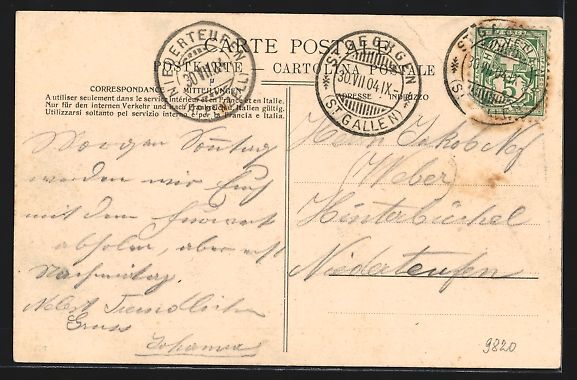 CARTE POSTALE
POSTKARTE CARTOLINA POSTALE
CORRESPONDANCE MITTEILUNGEN ADRESSE INDIRIZZO
A utiliser seulement dans le service intérieur et en France et en Italie.
Nur für den internen Verkehr und nach Frankreich und Italien gültig.
Utilizzarsi soltanto pel servizio interno e per la Francia e Italia.
NIEDERTEUFEN
30 VII
ST. GEORGEN
30 VII 04 IX
(ST. GALLEN)
5
Morgen Sonntag
werden wir Euch
mit dem Fuhrwerk
abholen, aber erst
Nachmittag.
Nebst Freundlichen
Gruss
Johannes
Herrn Jakob Nef
(Weber)
Hinterbüchel
Niederteufen
9820